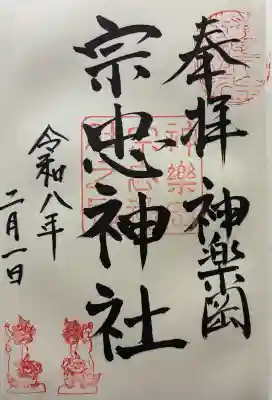 奉拝 神楽岡
宗忠神社
令和八年
二月一日